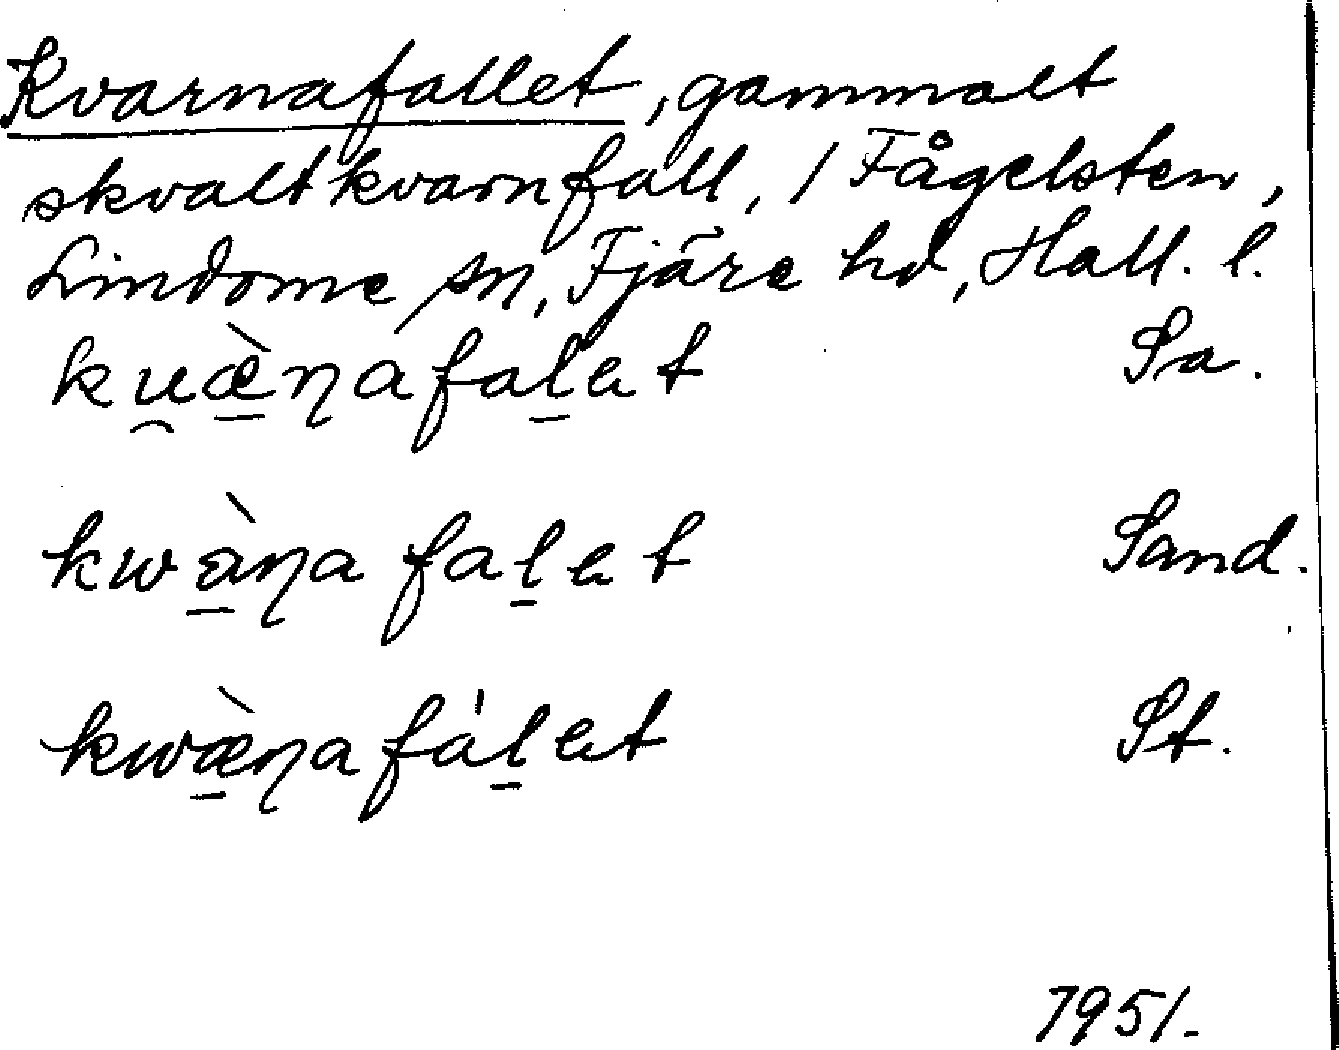 Kvarnafallet, gammalt
skvaltkvarnfall, / Fågelsten,
Lindome sn, Fjäre hd, Hall. l.
ku̯æ̱̀ŋafaḻet Sa.
kwà̱ŋafaḻet Sand.
kwæ̱̀ŋafáḻet St.
1951.